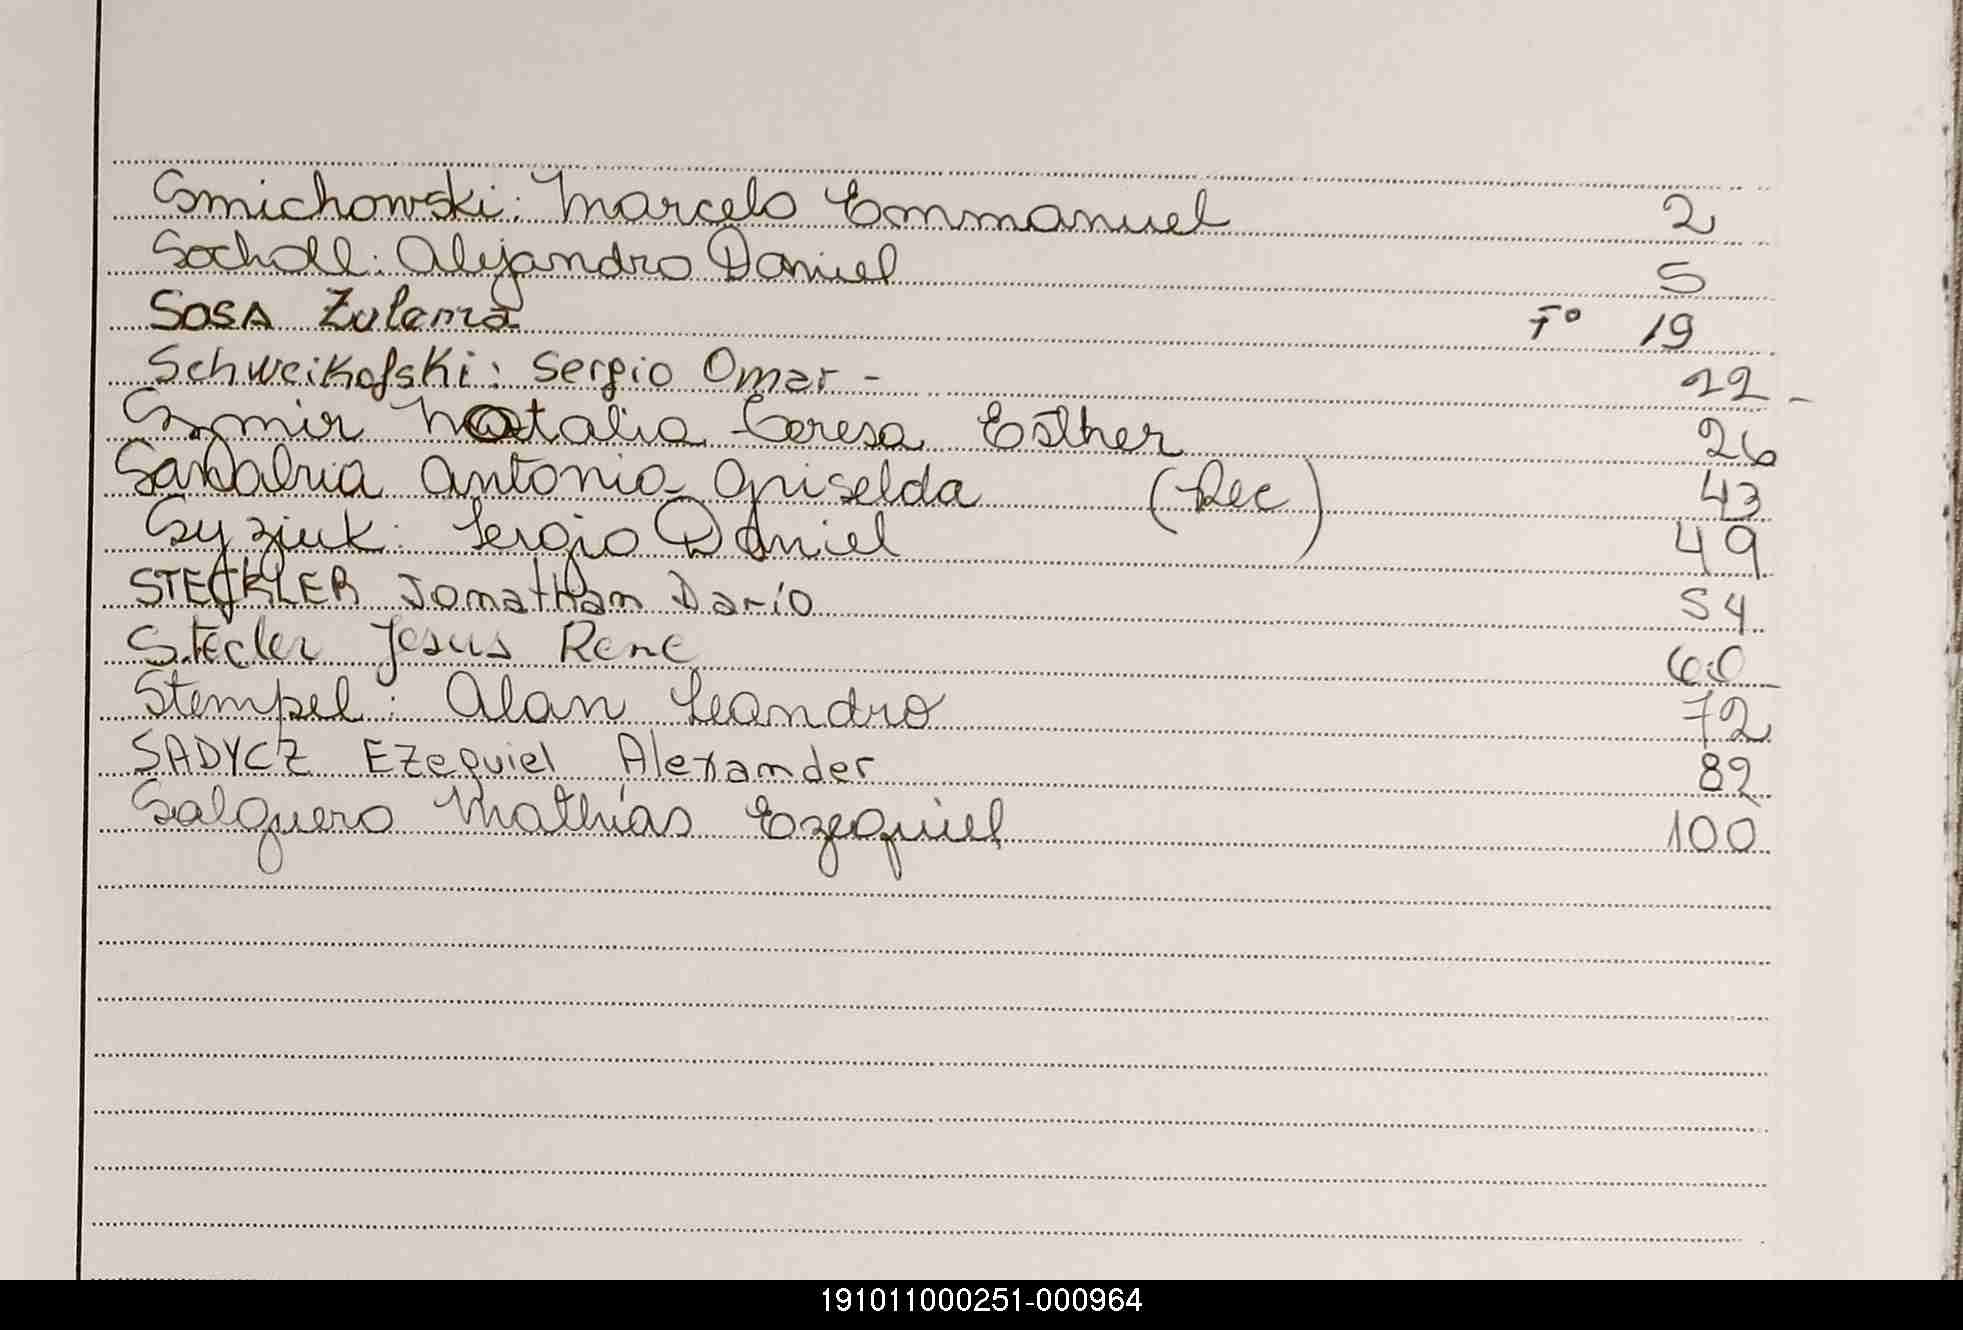 Smichowski: Marcelo Emmanuel 2
Socholl: Alejandro Daniel 5
SOSA Zulema F° 19
Schweikofski: Sergio Omar - 22 -
Szmir Natalia Teresa Esther 26
Sanabria Antonia Griselda (Rec) 43
Syziuk: Sergio Daniel 49
STECKLER Jonathan Darío 54
Stecler Jesus Rene 60
Stempel: Alan Leandro 72
SADYCZ Ezequiel Alexander 82
Salguero Mathías Ezequiel 100
191011000251-000964